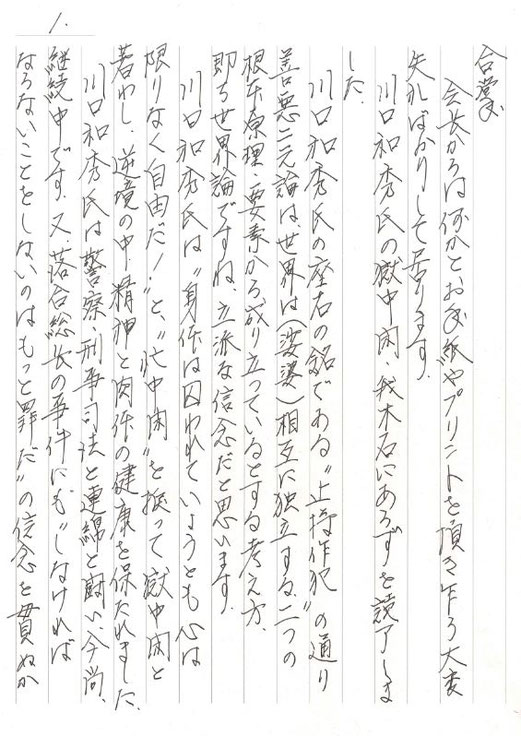 1.
合掌
会長からは何かとお手紙やプリントを頂き乍ら大変
失礼ばかりして居ります.
川口和秀氏の獄中閑、我木石にあらずを読了しま
した.
川口和秀氏の座右の銘である"止持作犯"の通り
善悪二元論は、世界は(娑婆)相互に独立する、二つの
根本原理・要素から成り立っているとする考え方.
即ち世界論ですね.立派な信念だと思います.
川口和秀氏は"身体は囚われていようとも心は
限りなく自由だ!"と、"忙中閑"を振って獄中閑と
著わし、逆境の中、精神と肉体の健康を保たれました.
川口和秀氏は警察、刑事司法と連綿と闘い今尚、
継続中です.又、落合総長の事件にも"しなければ
ならないことをしないのはもっと罪だ"の信念を貫ぬか